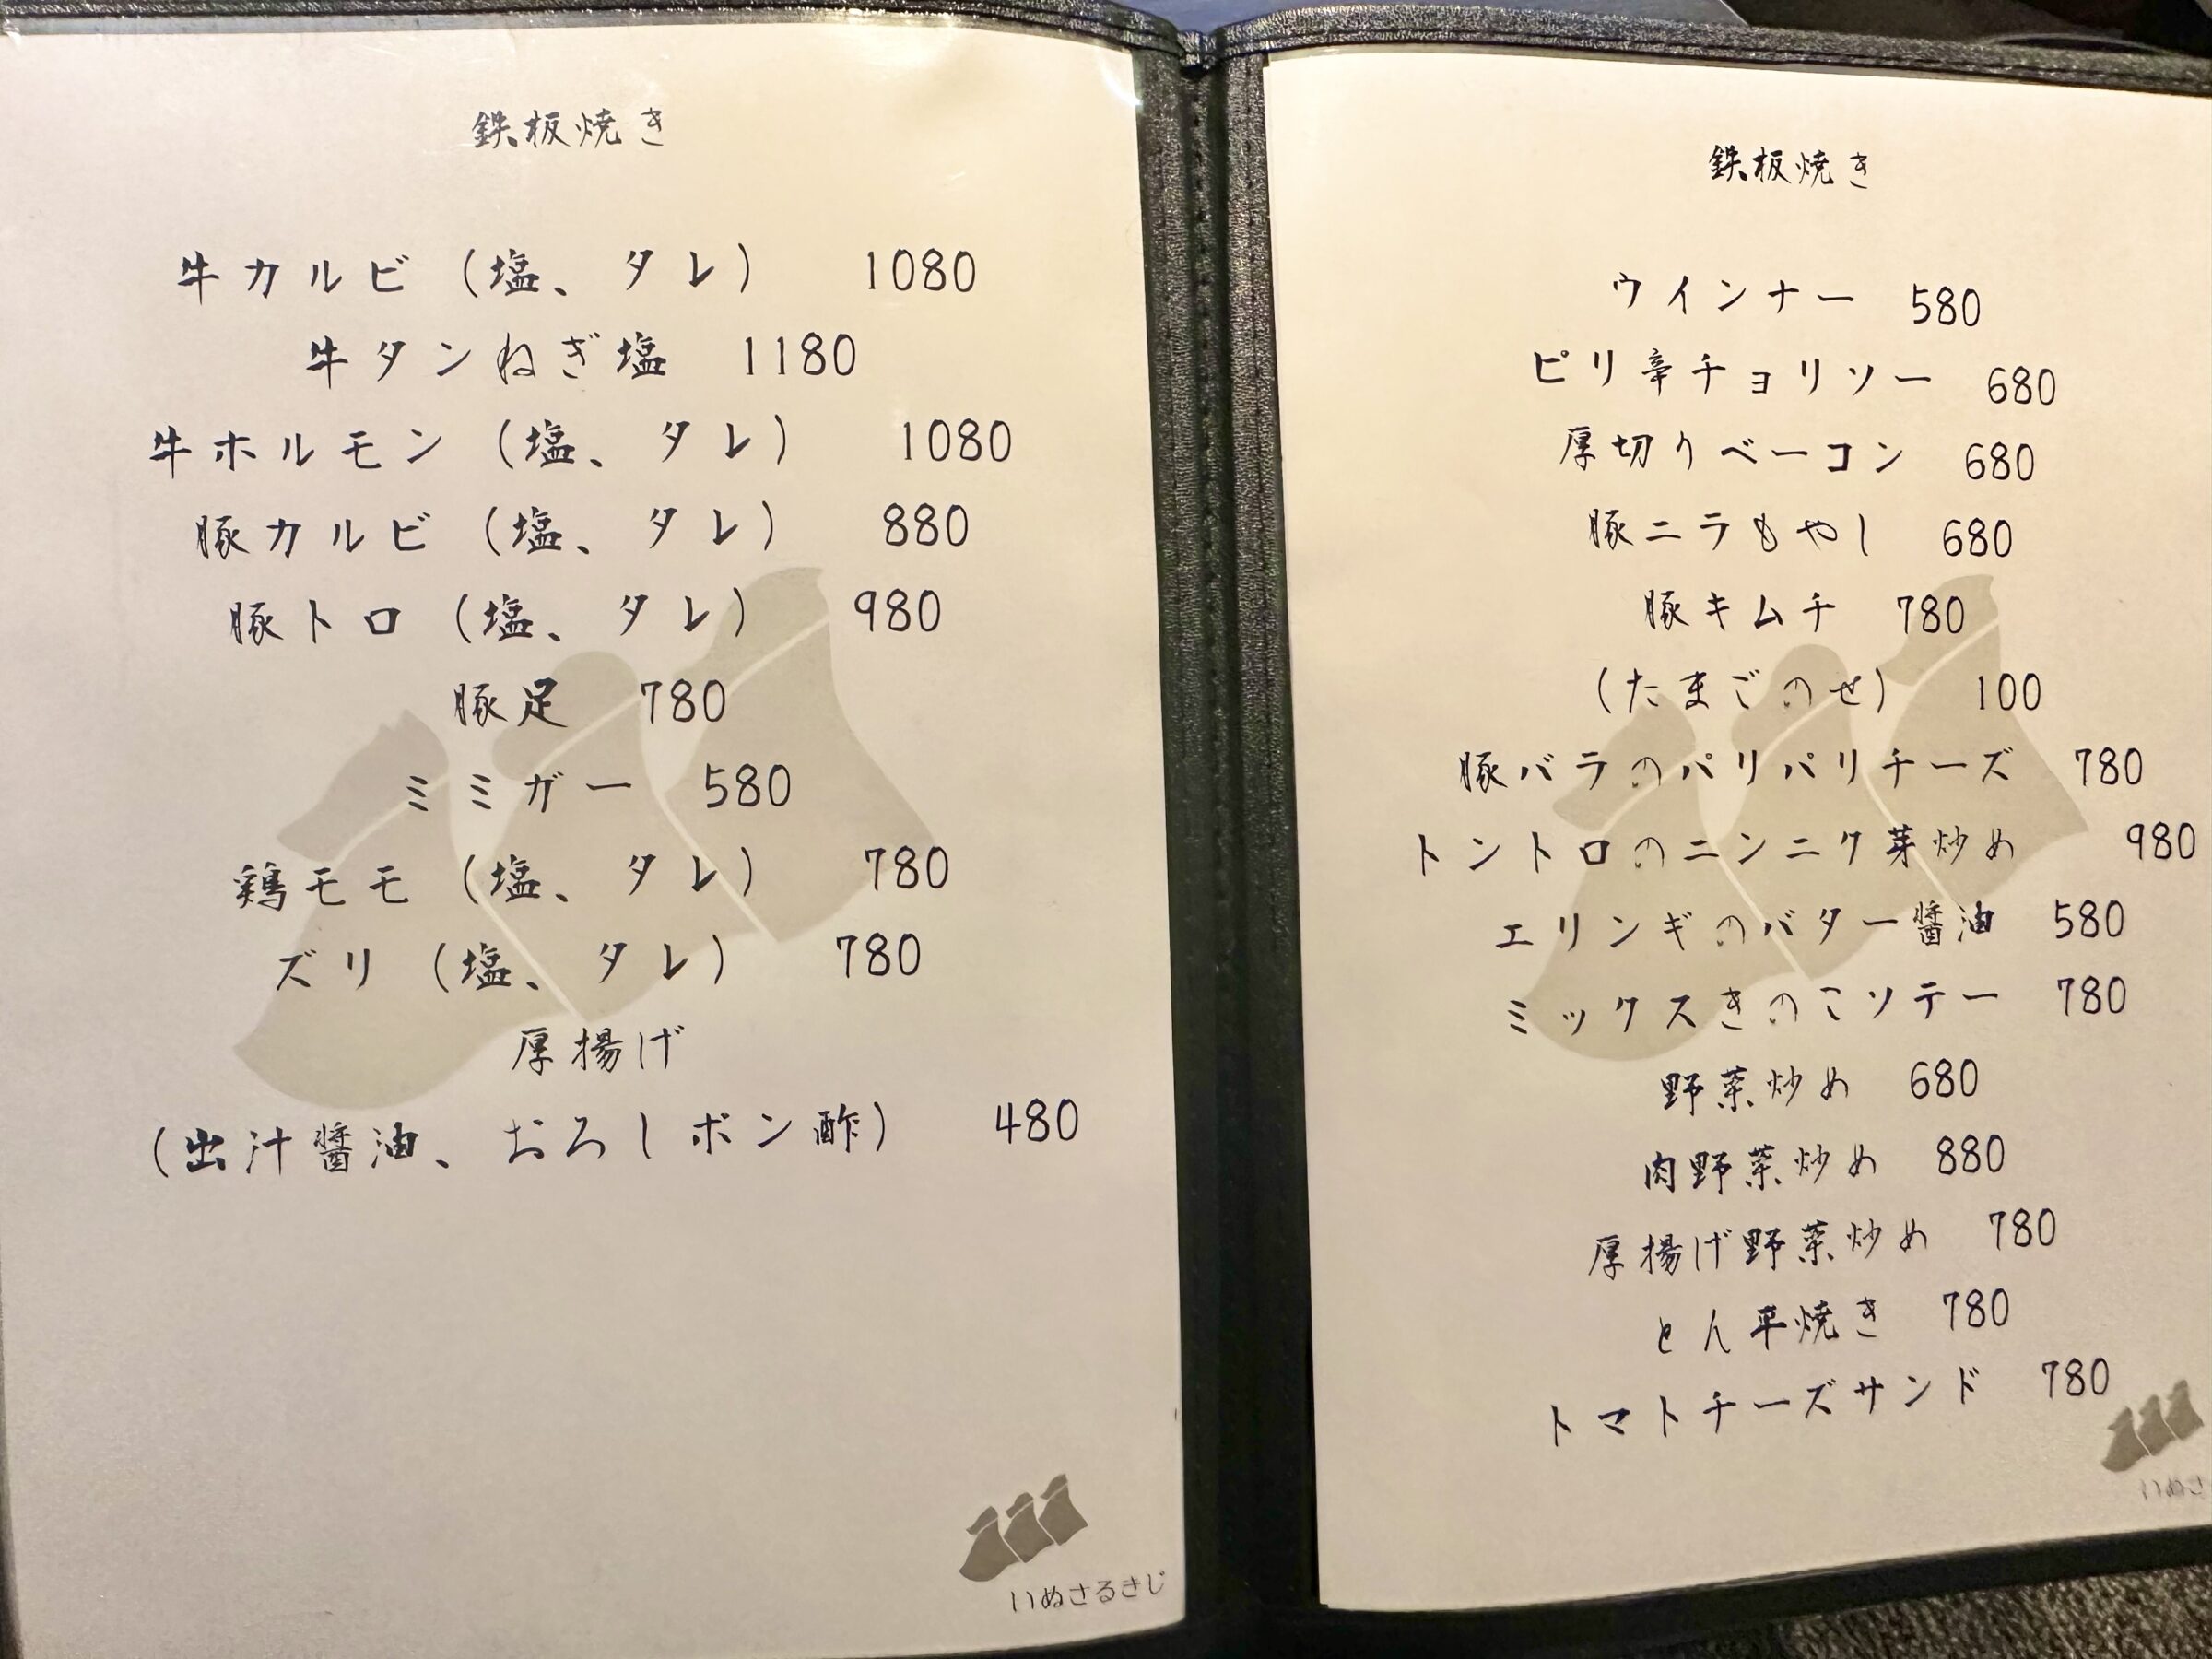 鉄板焼き
牛カルビ（塩、タレ） 1080
牛タンねぎ塩 1180
牛ホルモン（塩、タレ） 1080
豚カルビ（塩、タレ） 880
豚トロ（塩、タレ） 980
豚足 780
ミミガー 580
鶏モモ（塩、タレ） 780
ズリ（塩、タレ） 780
厚揚げ
（出汁醤油、おろしポン酢） 480
いぬさるきじ
鉄板焼き
ウインナー 580
ピリ辛チョリソー 680
厚切りベーコン 680
豚ニラもやし 680
豚キムチ 780
（たまごのせ） 100
豚バラのパリパリチーズ 780
トントロのニンニク芽炒め 980
エリンギのバター醤油 580
ミックスきのこソテー 780
野菜炒め 680
肉野菜炒め 880
厚揚げ野菜炒め 780
とん平焼き 780
トマトチーズサンド 780
いぬさ